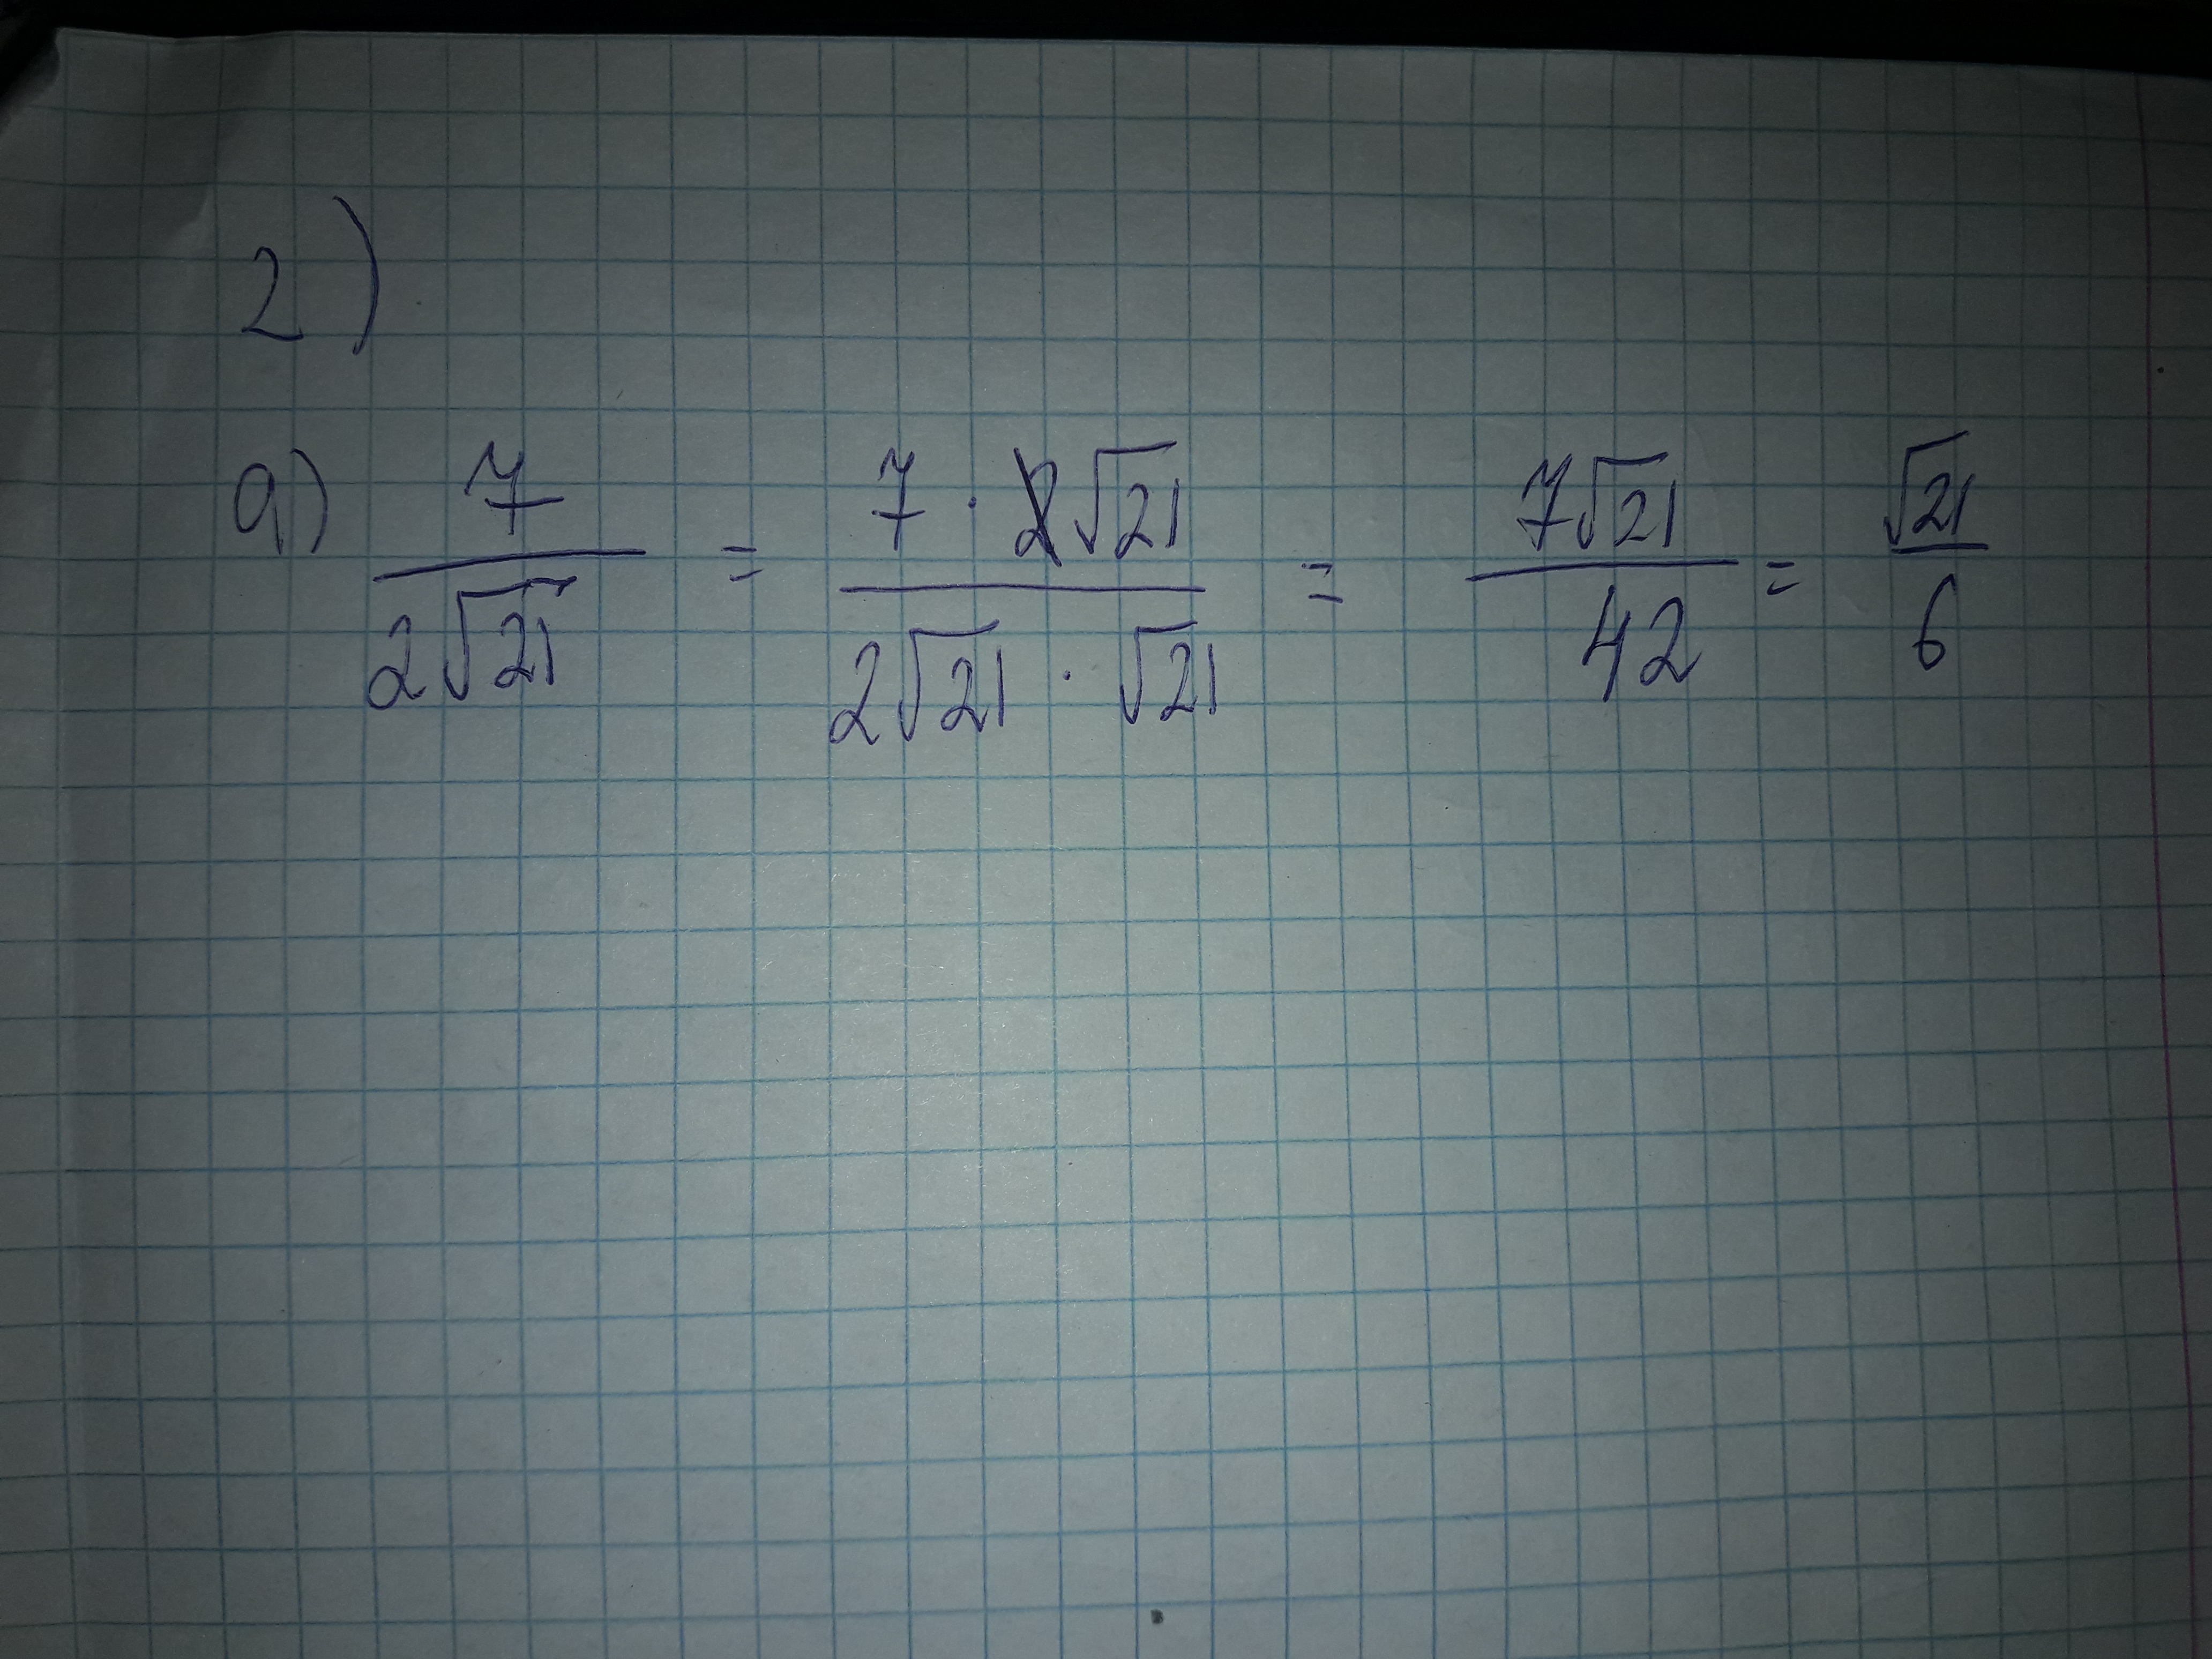 2)
a) 7/(2√21) = (7 · √21)/(2√21 · √21) = 7√21/42 = √21/6